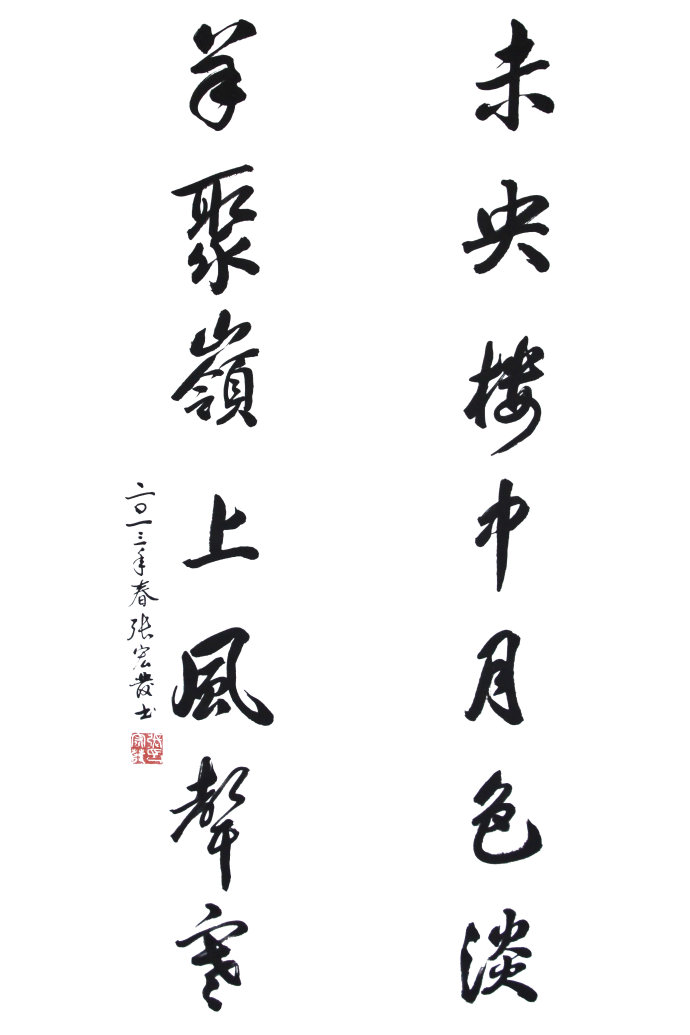 未央楼中月色淡
羊聚嶺上風聲寒
二〇一三年春張宏發书